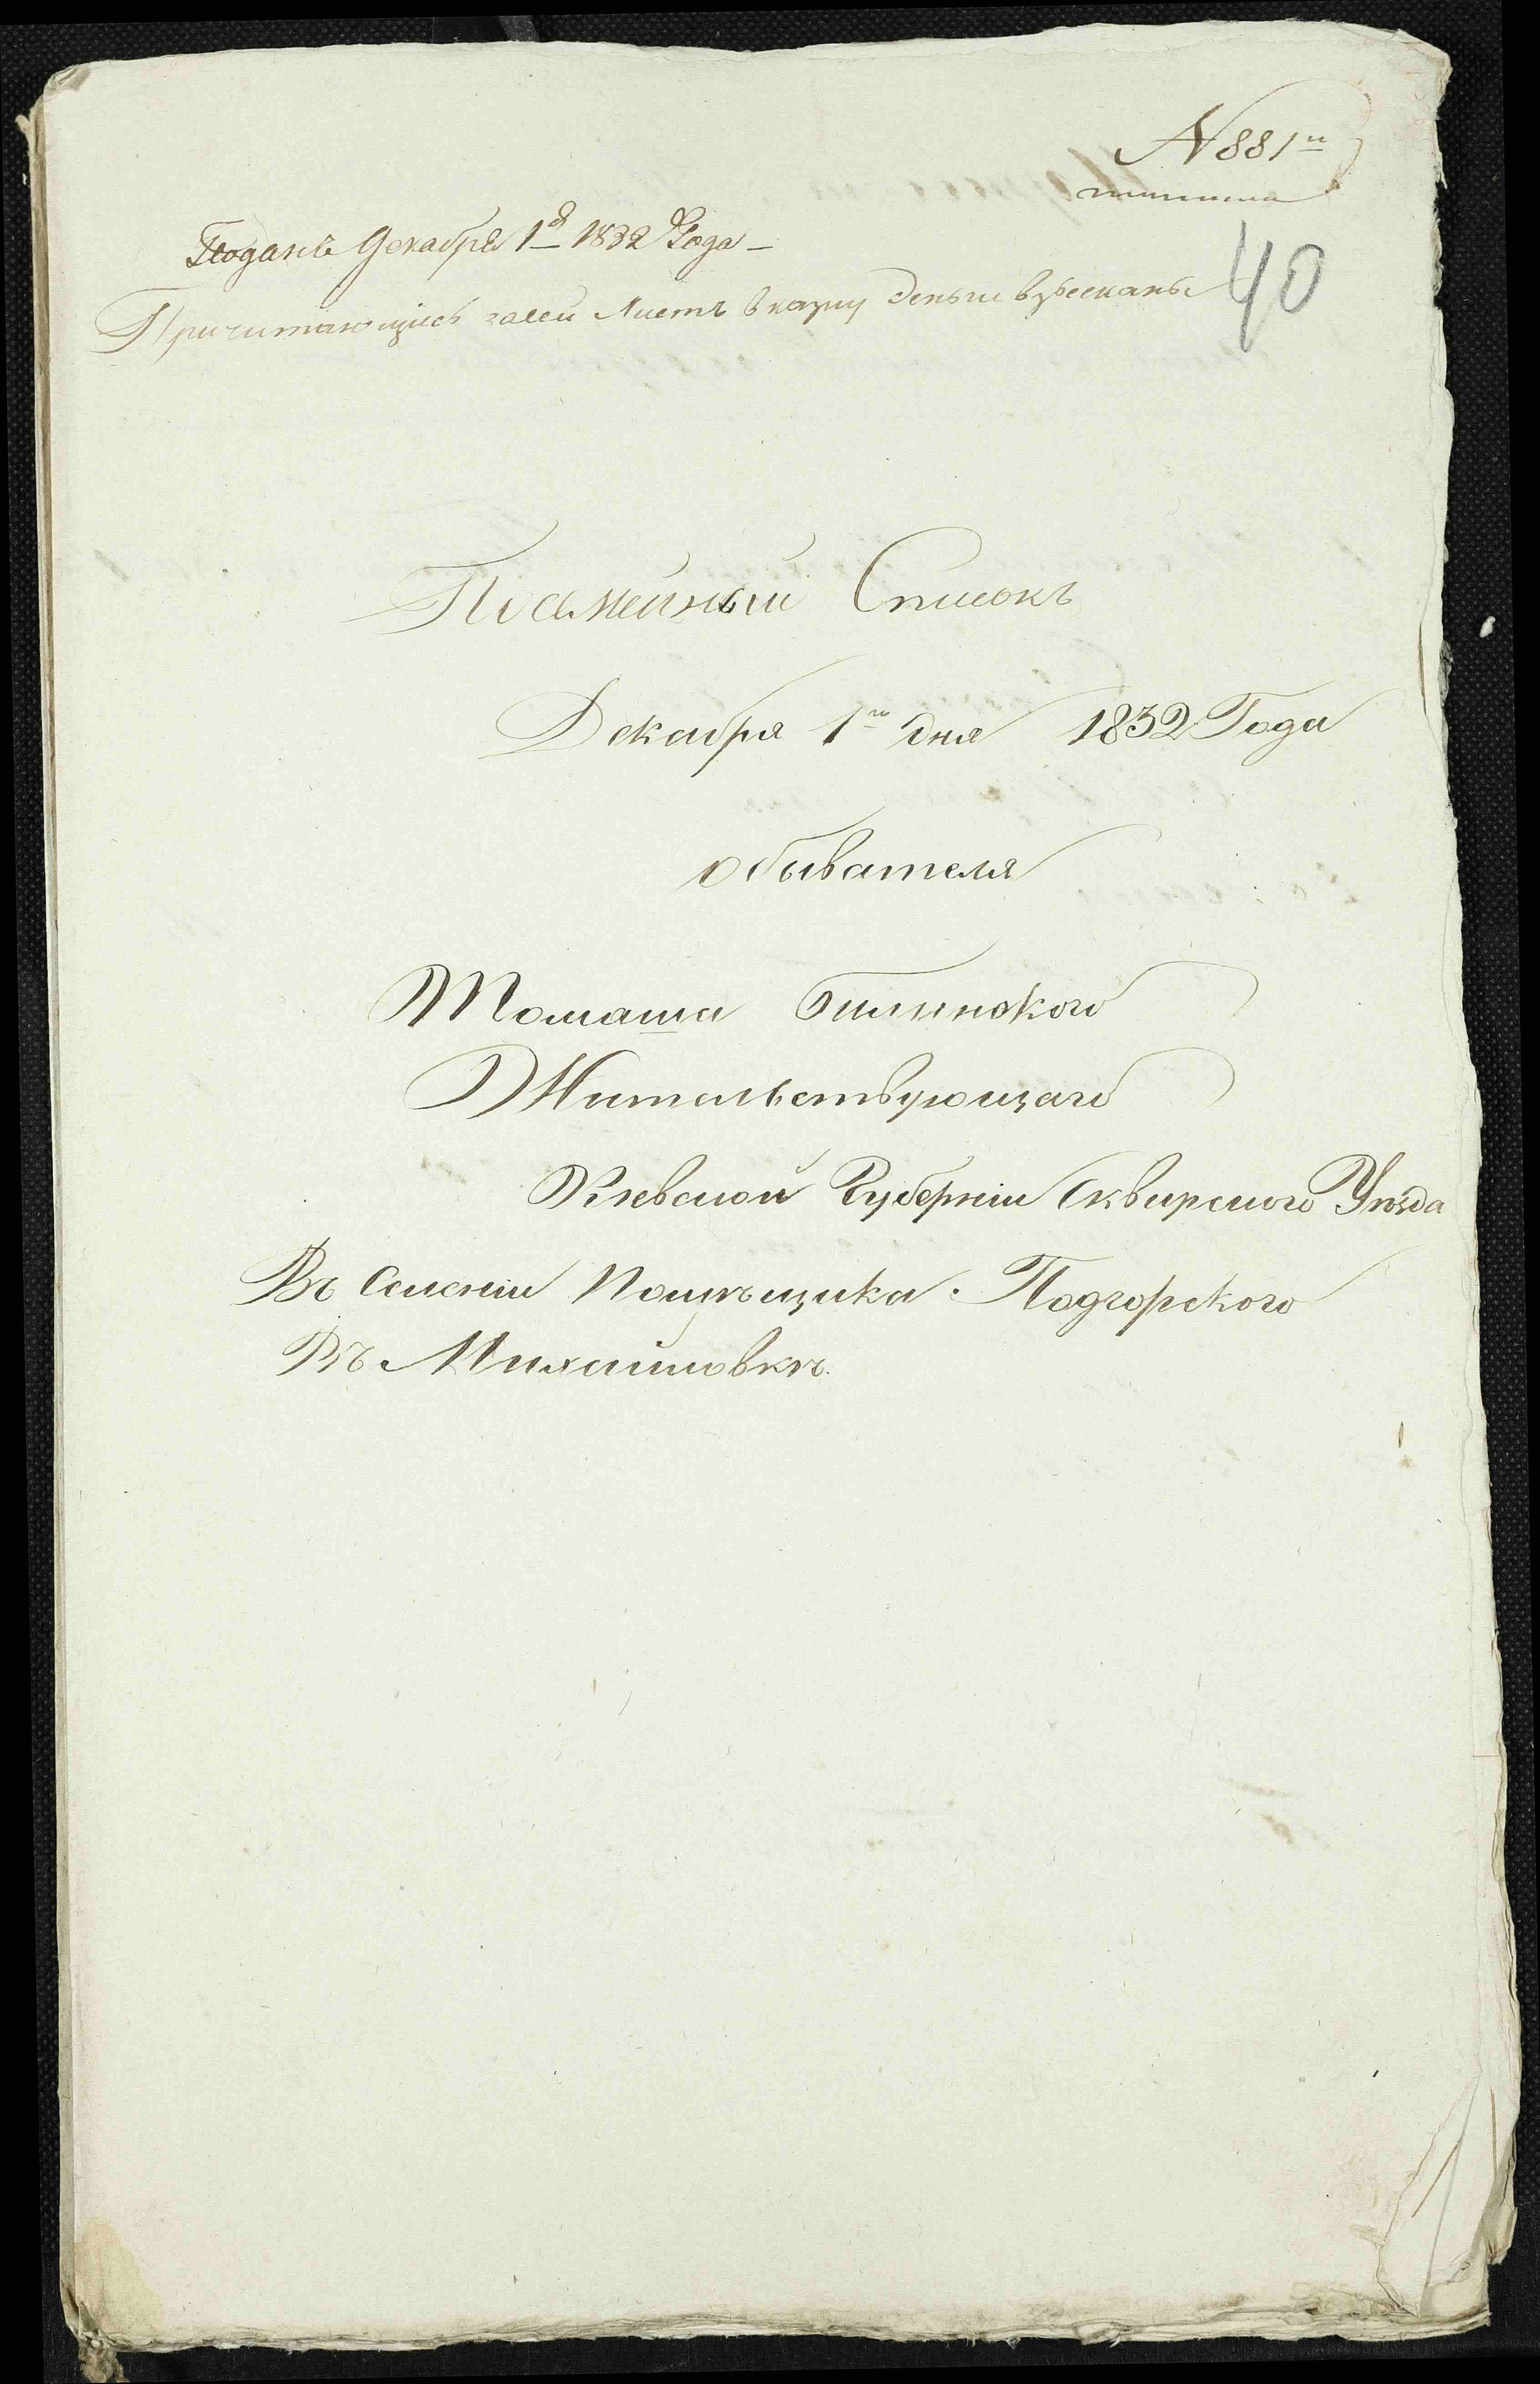 N 881й
40
Поданъ Декабря 1го 1832 Года
Причитающіясь засей Листъ в казну деньги взысканы
Посемейный Списокъ
Декабря 1го дня 1832 Года
обывателя
Томаша Билинского
Жительствующаго
Кіевской Губерніи Сквирского Уѣзда
Въ Селеніи Помѣщика Подгорского
Въ Михайловкѣ.